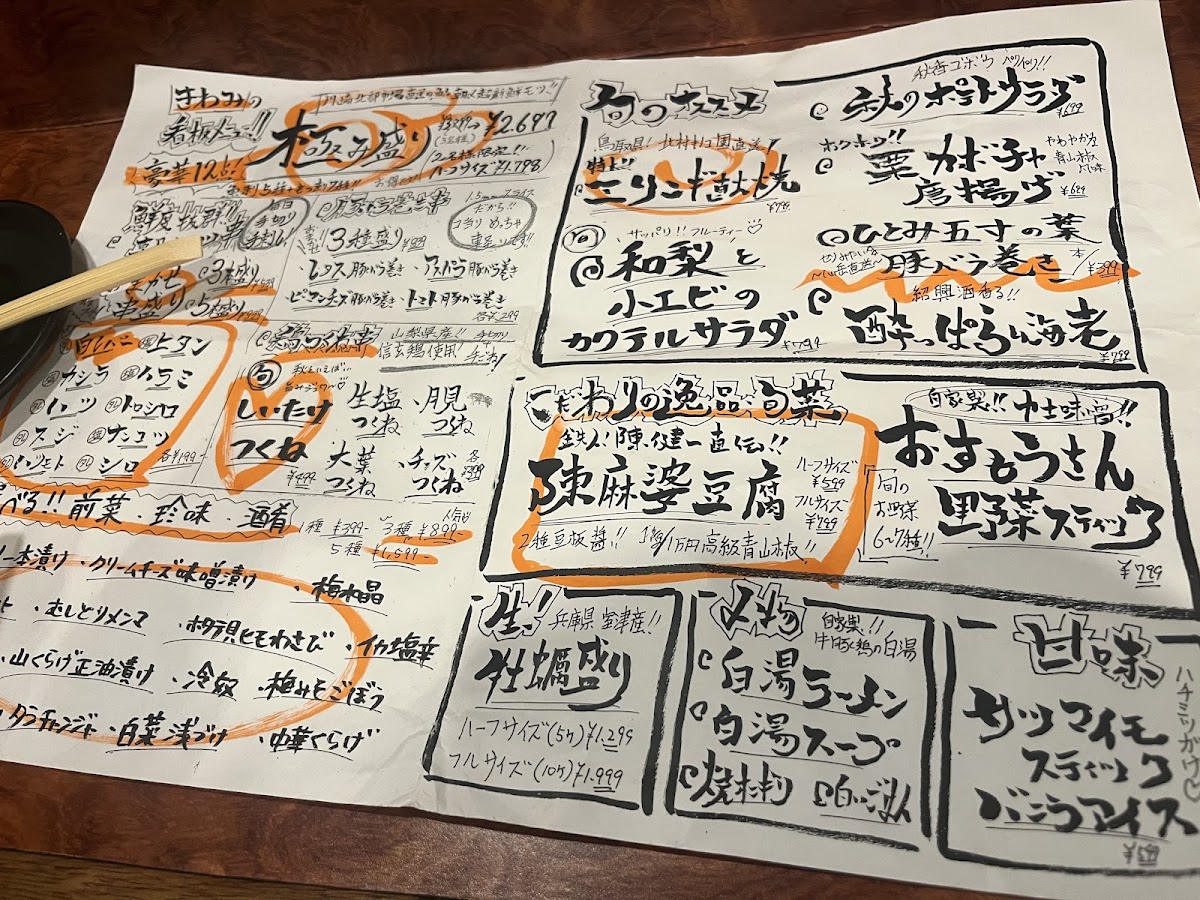 きわみの
看板メニュー!!
豪華12点!!
極み盛り
¥2,697
2名様限定!!
ハーフサイズ¥1,798
鮮度抜群!!
毎日
手切り
手刺し!
3本盛り
串盛り
5本盛り
白レバー
上タン
カシラ
ハラミ
ハツ
トロシロ
スジ
ナンコツ
シロ
各¥199-
1.5mmスライス
だから!!
コ当りめっちゃ
3種盛り ¥899
・レタス豚バラ巻き・アスパラ豚バラ巻き
ピーマンチーズ豚バラ巻き・トマト豚バラ巻き
各¥299
山梨県産!!
信玄鶏使用!
手切り
手ごね!
旬
しいたけ
つくね
¥499
生塩
つくね
・月見
つくね
大葉
つくね
・チーズ
つくね
各¥399
前菜・珍味・酒肴
1種 ¥399- 3種 ¥899-
5種 ¥1,599-
一本漬け・クリームチーズ味噌漬け・梅水晶
・むしどりメンマ・ホタテ貝ヒモわさび・イカ塩辛
山くらげ正油漬け・冷奴・梅みそごぼう
タラチャンジャ・白菜浅づけ・中華くらげ
旬のオススメ
鳥取県!北村きのこ園直送!
特大!!
旬
サッパリ!!フルーティー♡
和梨と
小エビの
カクテルサラダ
¥794
秋香ゴボウ パリパリ!!
秋のポテトサラダ
¥699
ホクホク!!
栗カボチャ
唐揚げ
やわやか
青山椒
風味
¥699
ひとみ五寸の葉
豚バラ巻き
1本
¥399
紹興酒香る!!
酔っぱらい海老
¥799
こだわりの逸品・旬菜
鉄人!陳健一直伝!!
陳麻婆豆腐
ハーフサイズ
¥599
フルサイズ
¥799
2種豆板醤!! 1kg1万円高級青山椒!!
自家製!!力士味噌!!
おすもうさん
野菜スティック
旬の
お野菜
6~7種!!
¥799
生!
兵庫県室津産!!
牡蠣盛り
ハーフサイズ(5ケ)¥1,299
フルサイズ(10ケ)¥1,999
〆物
自家製!!
牛豚鶏の白湯
白湯ラーメン
白湯スープ
焼きおにぎり
白いごはん
甘味
ハチミツがけ♡
サツマイモ
スティック
バニラアイス